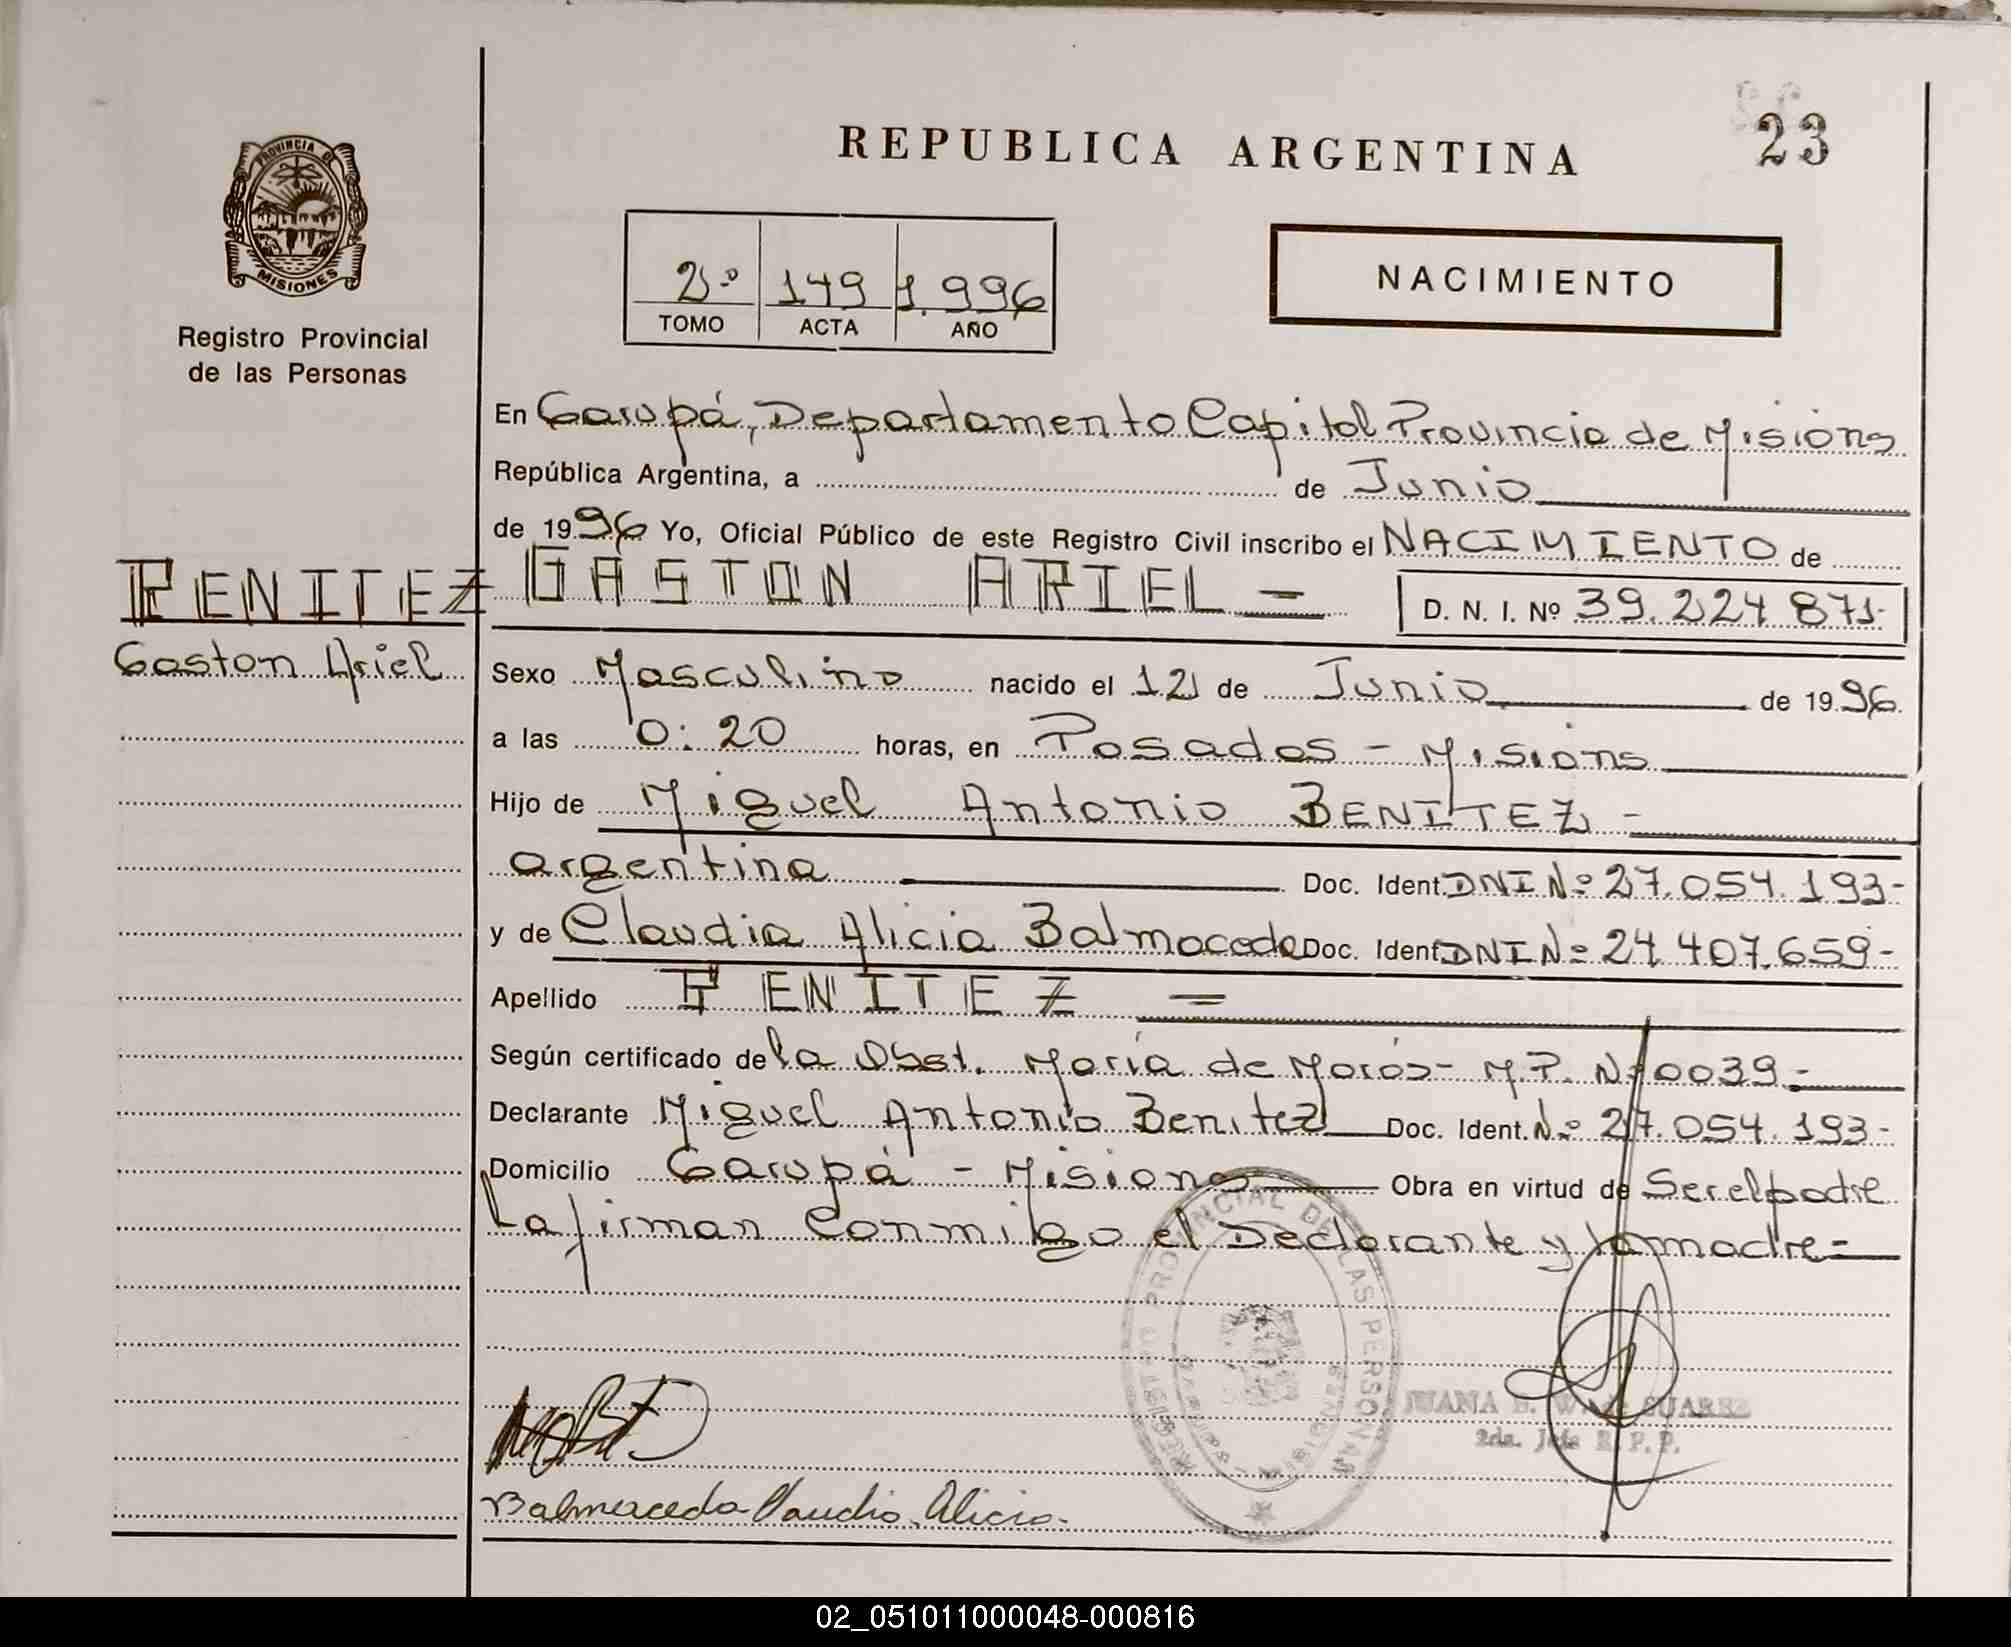 23
REPUBLICA ARGENTINA
PROVINCIA DE
MISIONES
Registro Provincial
de las Personas
2º 149 1.996
TOMO ACTA AÑO
NACIMIENTO
En Garupá, Departamento Capital Provincia de Misions
República Argentina, a de Junio
de 1996 Yo, Oficial Público de este Registro Civil inscribo el NACIMIENTO de
BENITEZ GASTON ARIEL =
D. N. I. Nº 39.224 871-
Gaston Ariel
Sexo Masculino nacido el 12 de Junio de 1996.
a las 0:20 horas, en Posadas - Misions
Hijo de Miguel Antonio BENITEZ -
argentina Doc. Ident. DNI Nº 27.054.193-
y de Claudia Alicia Balmaceda Doc. Ident. DNI Nº 24 407.659-
Apellido BENITEZ =
Según certificado de la Obst. María de M.P. Nº 0039 -
Declarante Miguel Antonio Benitez Doc. Ident. Nº 27.054.193-
Domicilio Garupá - Misions Obra en virtud de Ser el padre
La firman conmigo el Declarante y la madre =
REGISTRO PROVINCIAL DE LAS PERSONAS
JUANA E. SUAREZ
2da. Jefe R.P.P.
Balmaceda Claudia Alicia.
02_051011000048-000816